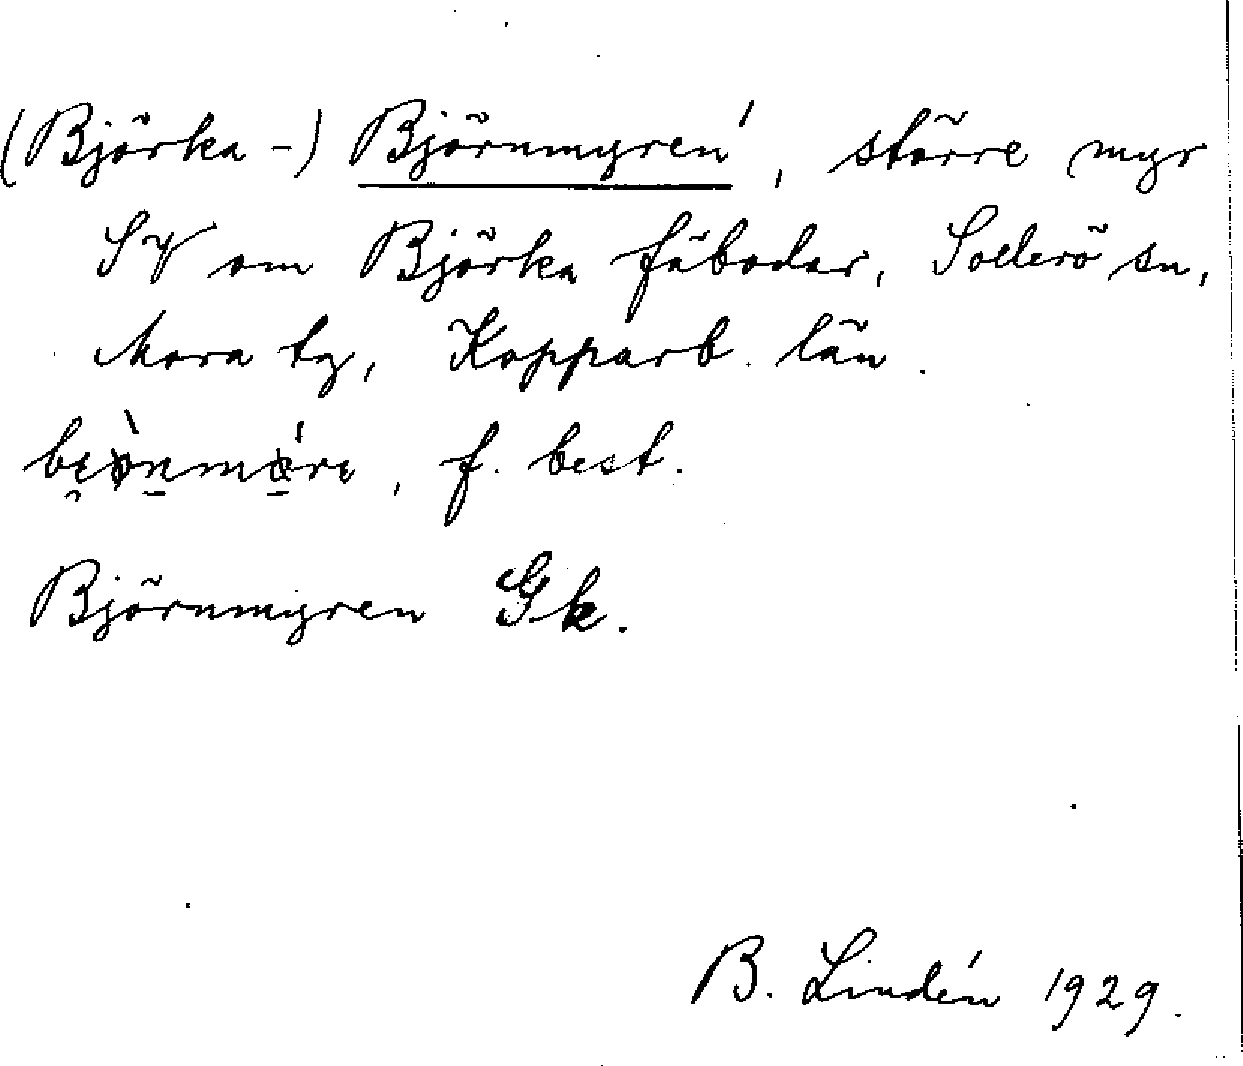 (Björka-) Björnmyren', större myr
SV om Björka fäbodar, Sollerö sn,
Mora tg, Kopparb. län.
f. best.
Björnmyren Gk.
B. Lindén 1929.